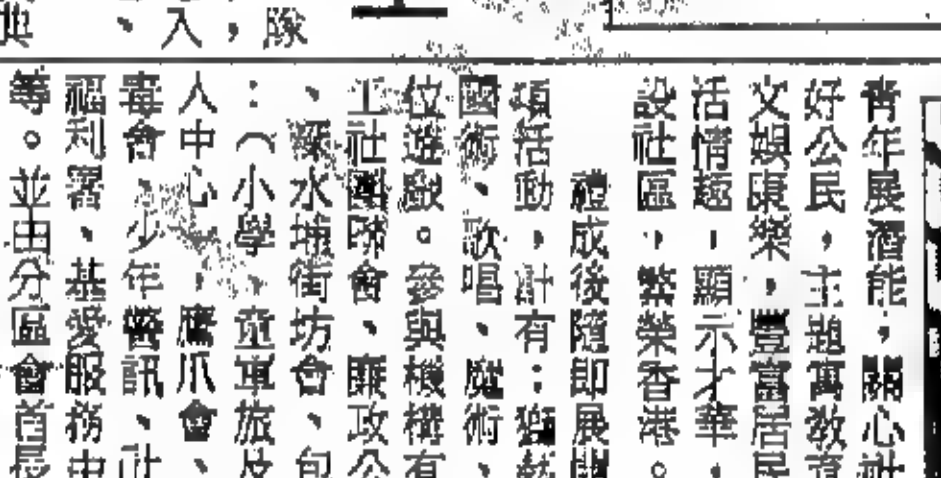 隊
，
入
、
青年展潛能，關心社
好公民，主題寓教育
文娛康樂，豐富居民
活情趣，顯示才華，
設社區，繁榮香港。
禮成後隨即展開
項活動，計有：獅藝
國術、歌唱、魔術、
位遊戲。參與機構有
工社團聯會、廉政公
、深水埗街坊會、包
：（小學、童軍旅及
人中心），鷹爪會、
毒會、少年警訊、社
福利署、基愛服務中
等。並由分區會首長